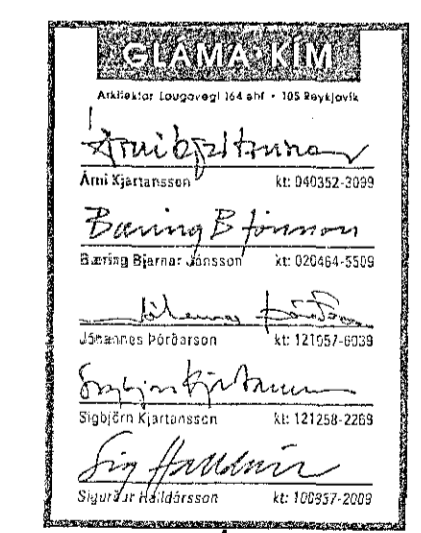 GLÁMA•KÍM
Arkitektar Laugavegi 164 ehf • 105 Reykjavík
Árni Kjartansson
Árni Kjartansson kt: 040352-3099
Bæring B Jónsson
Bæring Bjarnar Jónsson kt: 020464-5509
Jóhannes Þórðarson
Jóhannes Þórðarson kt: 121057-6039
Sigbjörn Kjartansson
Sigbjörn Kjartansson kt: 121258-2269
Sig Halldórsson
Sigurður Halldórsson kt: 100957-2009